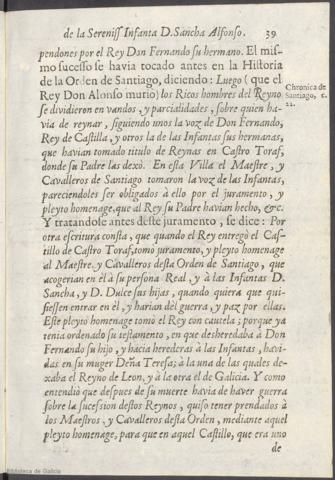 de la Sereniss Infanta D. Sancha Alfonso. 39
pendones por el Rey Don Fernando su hermano. El mis-
mo sucesso se havia tocado antes en la Historia
de la Orden de Santiago, diciendo: Luego (que el
Rey Don Alonso murio) los Ricos hombres del Reyno
se dividieron en vandos, y parcialidades, sobre quien ha-
via de reynar, siguiendo unos la voz de Don Fernando,
Rey de Castilla, y otros la de las Infantas sus hermanas,
que havian tomado titulo de Reynas en Castro Toraf,
donde su Padre las dexò. En esta Villa el Maestre, y
Cavalleros de Santiago tomaron la voz de las Infantas,
pareciendoles ser obligados à ello por el juramento, y
pleyto homenage, que al Rey su Padre havian hecho, &c.
Y tratandose antes deste juramento, se dice: Por
otra escritura consta, que quando el Rey entregò el Cas-
tillo de Castro Toraf, tomò juramento, y pleyto homenage
al Maestre, y Cavalleros desta Orden de Santiago, que
acogerian en él à su persona Real, y à las Infantas D.
Sancha, y D. Dulce sus hijas, quando quiera que qui-
siessen entrar en él, y harian del guerra, y paz por ellas.
Este pleyto homenage tomò el Rey con cautela; porque ya
tenia ordenado su testamento, en que desheredaba à Don
Fernando su hijo, y hacia herederas à las Infantas, havi-
das en su muger Doña Teresa; à la una de las quales de-
xaba el Reyno de Leon, y à la otra el de Galicia. Y como
entendiò que despues de su muerte havia de haver guerra
sobre la sucession destos Reynos, quiso tener prendados à
los Maestros, y Cavalleros desta Orden, mediante aquel
pleyto homenage, para que en aquel Castillo, que era uno
de
Chronica de
Santiago, c.
22.
Biblioteca de Galicia